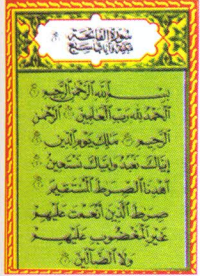 سورة الفاتحة
مكية وآياتها سبع
بسم الله الرحمن الرحيم
الحمد لله رب العلمين الرحمن
الرحيم ملك يوم الدين
إياك نعبد وإياك نستعين
اهدنا الصرط المستقيم
صرط الذين أنعمت عليهم
غير المغضوب عليهم
ولا الضالين